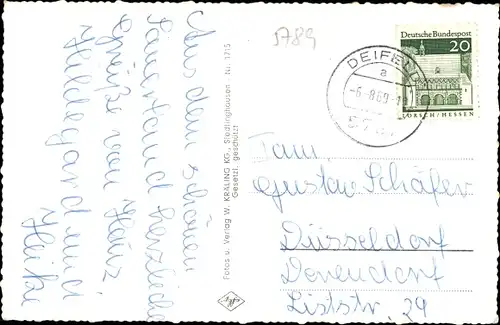 Aus dem schönen
Sauerland herzliche
Grüße von Heinz
Hildegard und
Heike
Fotos u. Verlag W. KRÄLING KG., Siedlinghausen Nr. 1715
Gesetzl. geschützt
5789
Deutsche Bundespost
20
LORSCH/HESSEN
DEIFELD
a
-6.-8.69.-1
Fam
Gustav Schäfer
Düsseldorf
Derendorf
Liststr. 29